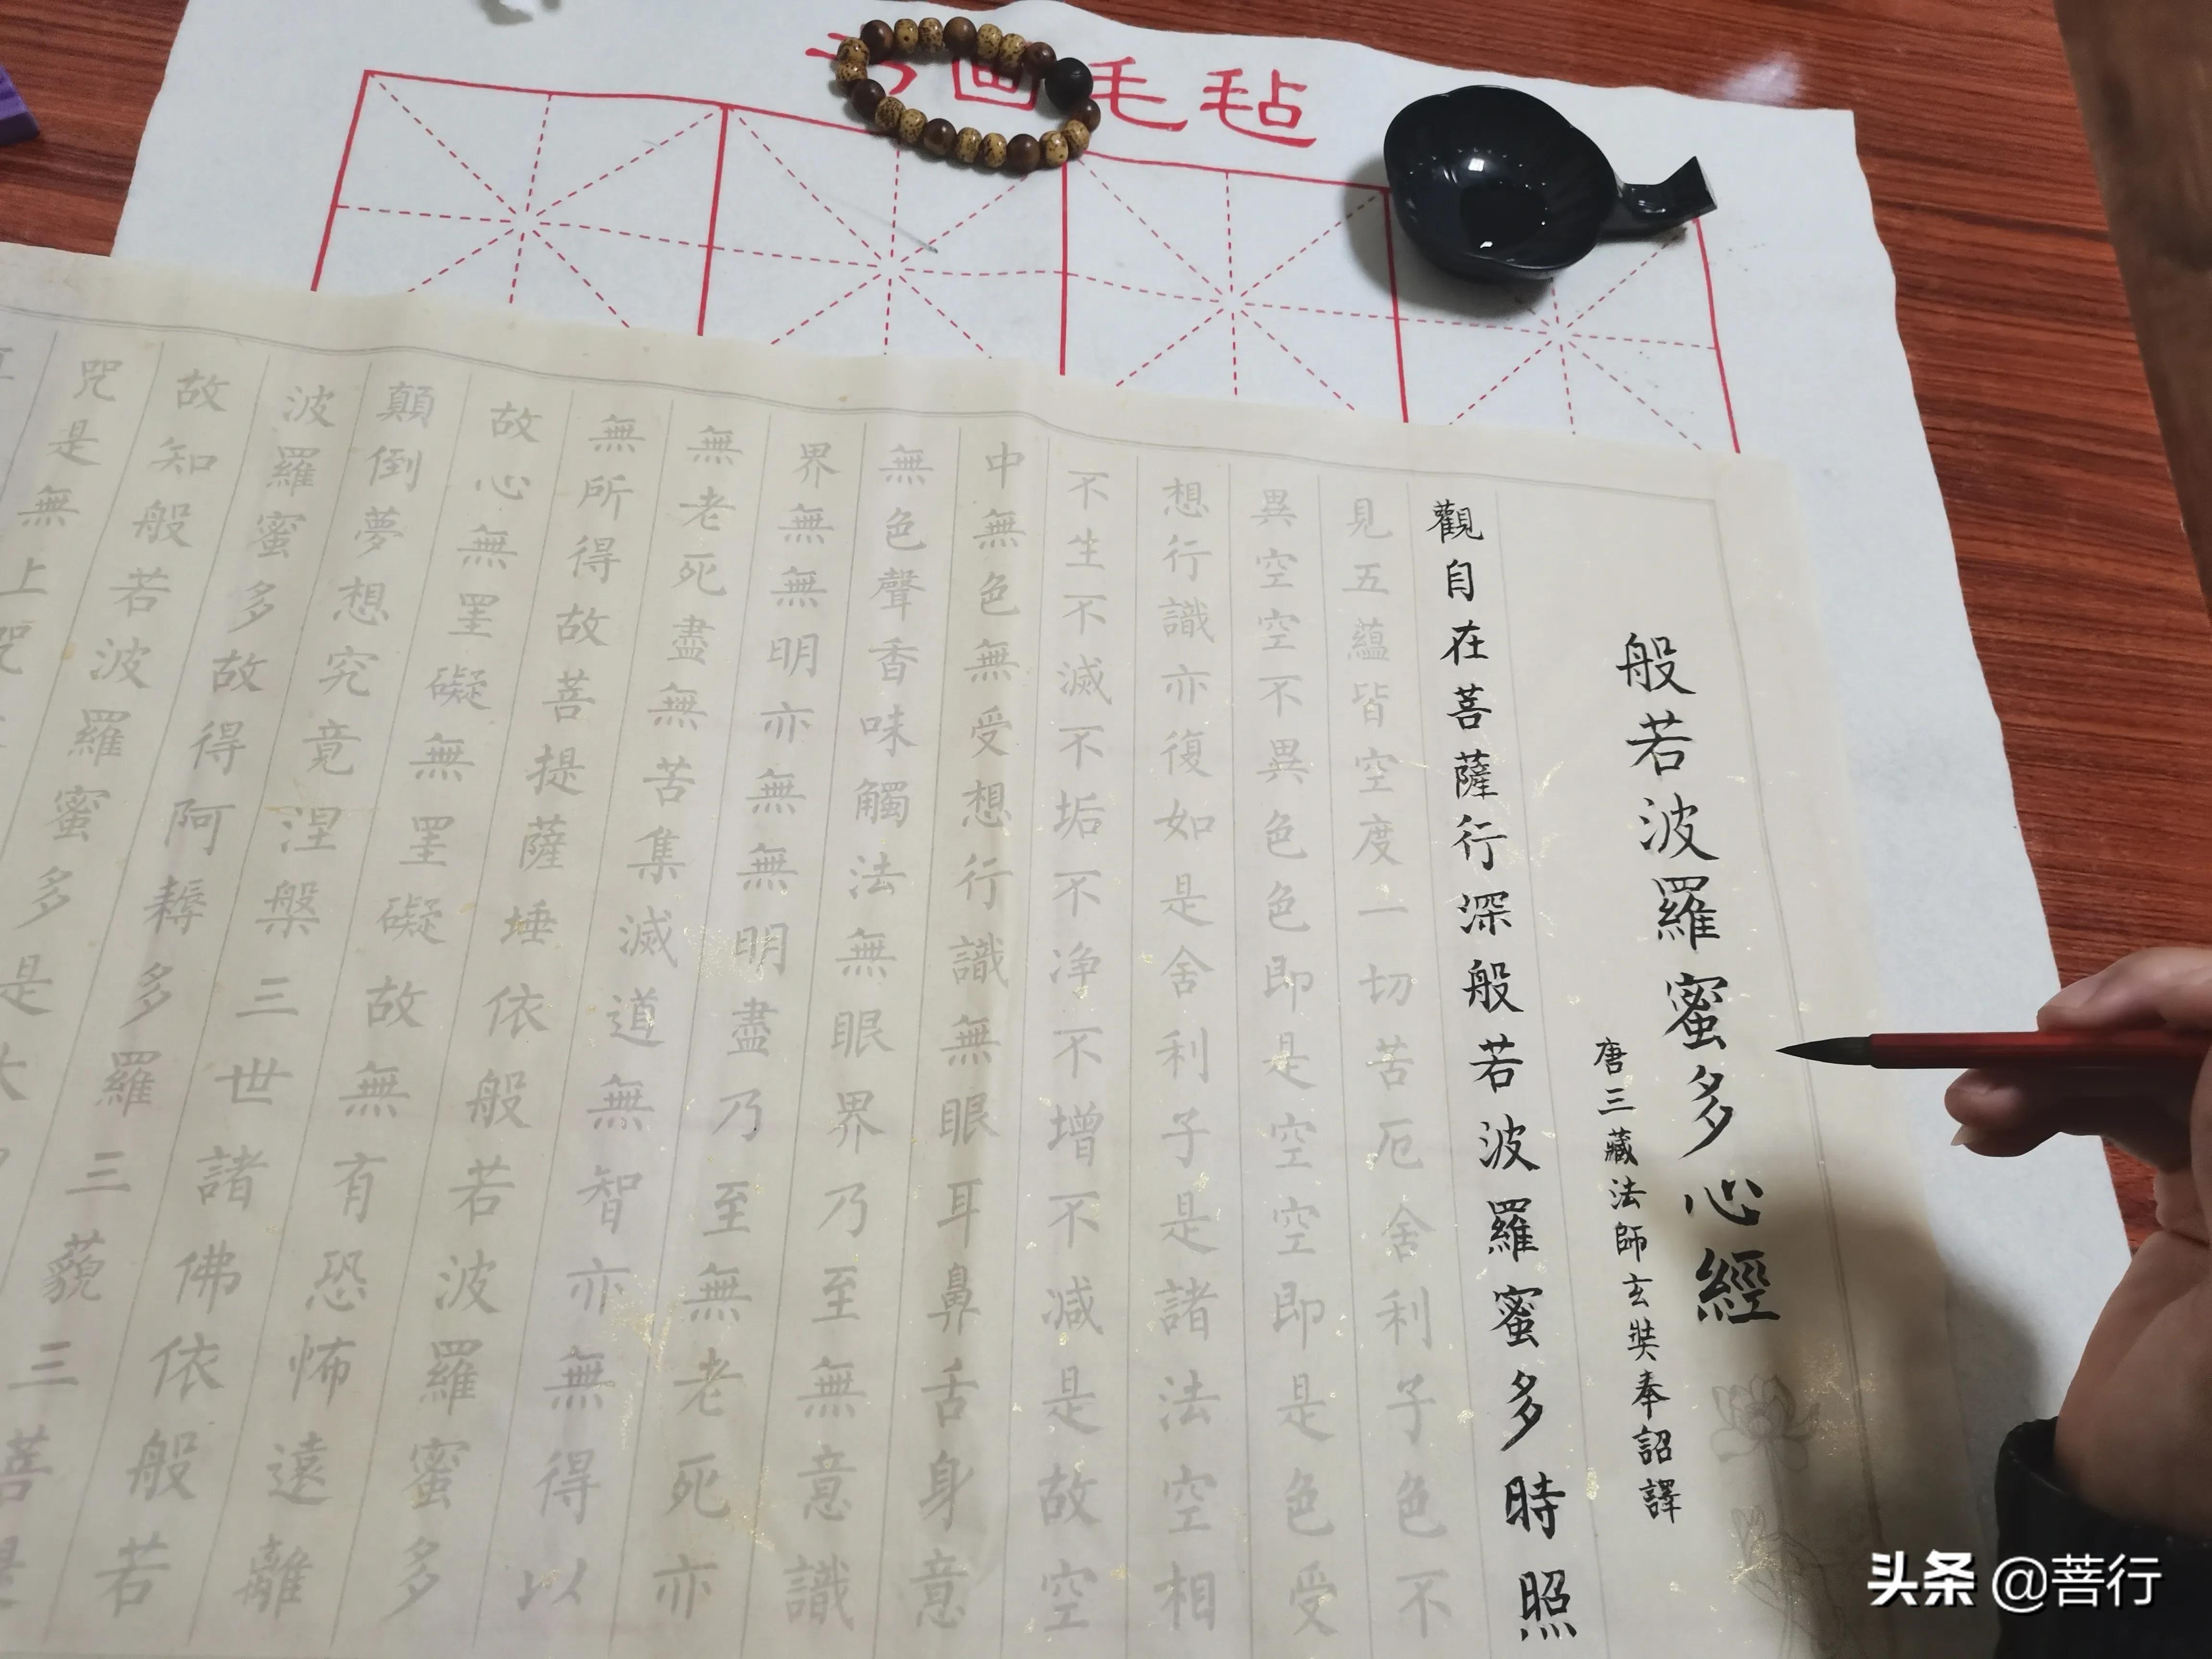 画毛毡
般若波羅蜜多心經
唐三藏法師玄奘奉詔譯
觀自在菩薩行深般若波羅蜜多時照
見五蘊皆空度一切苦厄舍利子色不
異空空不異色色即是空空即是色受
想行識亦復如是舍利子是諸法空相
不生不滅不垢不净不增不减是故空
中無色無受想行識無眼耳鼻舌身意
無色聲香味觸法無眼界乃至無意識
界無無明亦無無明盡乃至無老死亦
無老死盡無苦集滅道無智亦無得以
無所得故菩提薩埵依般若波羅蜜多
故心無罣礙無罣礙故無有恐怖遠離
顛倒夢想究竟涅槃三世諸佛依般若
波羅蜜多故得阿耨多羅三藐三菩
故知般若波羅蜜多是大
咒是無上咒
头条 @菩行